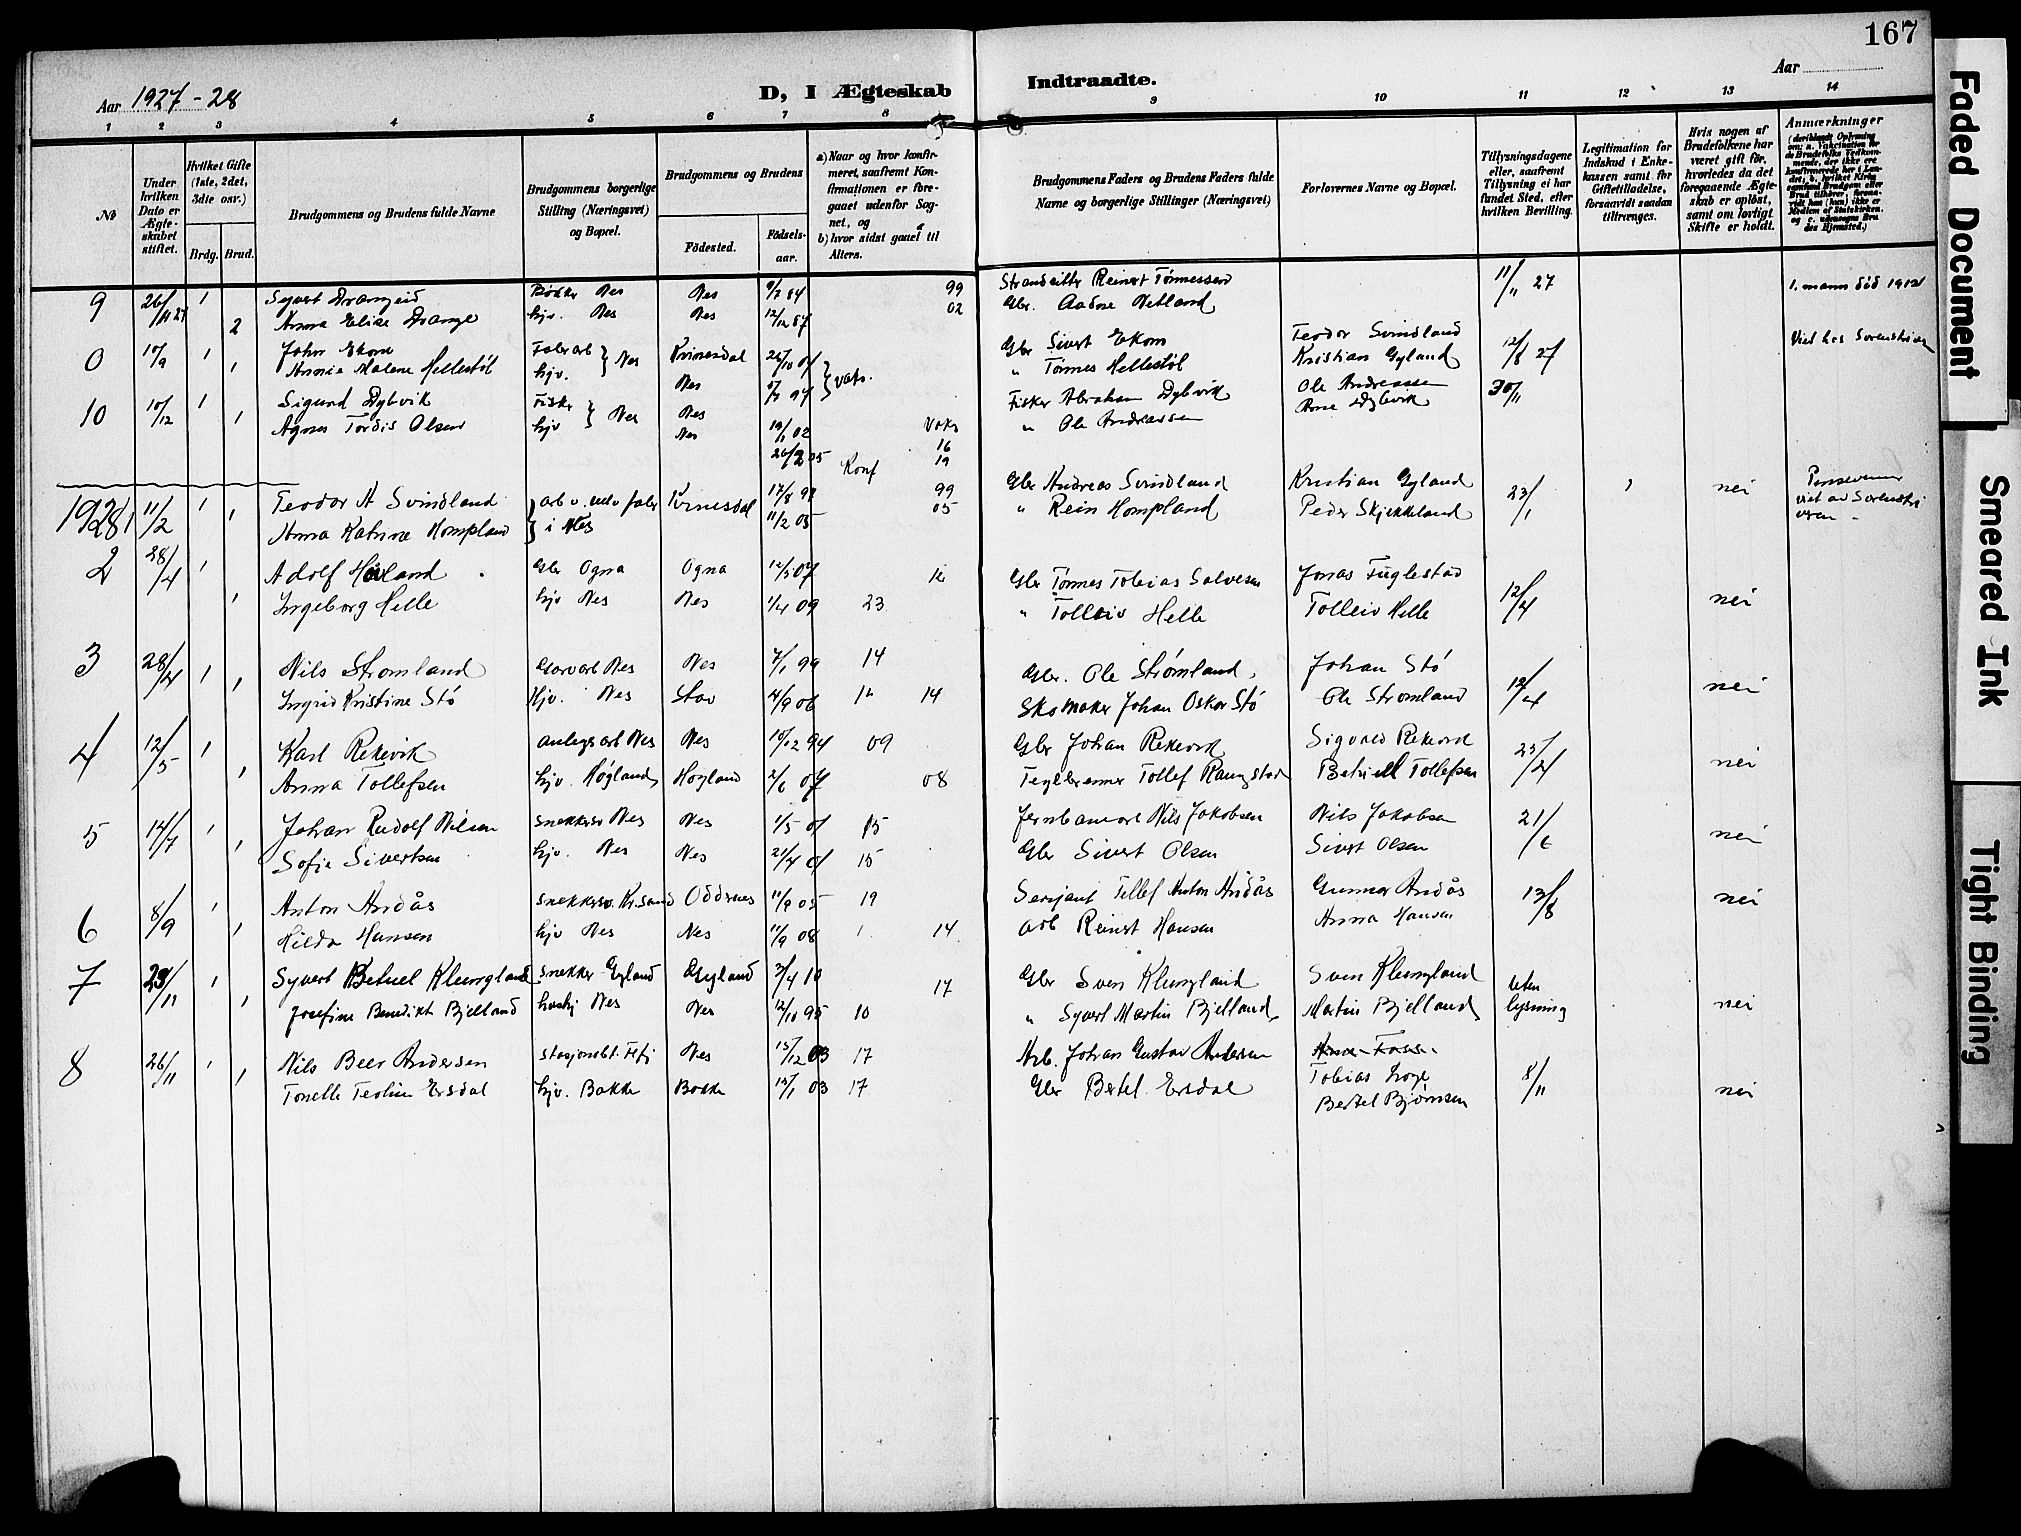 167
Aar 1927-28
D, I Ægteskab Indtraadte.
Aar
1 2 3 4 5 6 7 8 9 10 11 12 13 14
№
Under hvilken Dato er Ægteskabet stiftet.
Hvilket Gifte (1ste, 2det, 3die osv.)
Brdg. Brud.
Brudgommens og Brudens fulde Navne
Brudgommens borgerlige Stilling (Næringsvei) og Bopæl.
Brudgommens og Brudens
Födested. Födselsaar.
a) Naar og hvor konfirmeret, saafremt Konfirmationen er foregaaet udenfor Sognet, og
b) hvor sidst gaaet til Alters.
Brudgommens Faders og Brudens Faders fulde Navne og borgerlige Stillinger (Næringsvei)
Forlovernes Navne og Bopæl.
Tillysningsdagene eller, saafremt Tillysning ei har fundet Sted, efter hvilken Bevilling.
Legitimation for Indskud i Enkekassen samt for Giftetilladelse, forsaavidt saadan tiltrænges.
Hvis nogen af Brudefolkene har været gift för, hvorledes da det foregaaende Ægteskab er oplöst, samt om lovligt Skifte er holdt.
Anmærkninger
9 26/11 27 1 Syvert Drangeid Bøkker Nes Nes 9/7 84 99 Strandsitter Reinert Tønnessen 11/11 27 1. mann död 1912
2 Anna Elise Drange hjv. Nes Nes 12/12 87 02 Gbr. Aadne Netland
0 10/9 1 John Ekom Fabr arb Nes Kvinesdal 26/10 07 Gbr Sivert Ekom Teodor Svindland 12/8 27
1 Annie Malene Hellestöl hjv. Nes " Tønnes Hellestöl Kristian Gyland
10 10/12 1 Sigurd Dybvik Fisker Nes Nes 19/1 02 16 Fisker Abraham Dybvik Ole Andreassen 30/11
1 Agnes Tordis Olsen hjv Nes Konf 19 " Ole Andreassen Arne Dybvik
1928 1 11/2 1 Teodor A Svindland arb v. ullv fabr i Nes Kvinesdal 17/8 97 99 Gbr Andreas Svindland Kristian Gyland 23/1 nei
1 Anna Katrine Hompland 11/2 05 05 " Rein Hompland Peder Skjekkeland
2 28/4 1 Adolf Hovland Gbr Ogna Ogna 12/5 07 12 Gbr Tønnes Tobias Salvesen Jonas Fuglestad 12/4 nei
1 Ingeborg Helle hjv Nes Nes 1/4 09 23 " Tolleiv Helle Tolleiv Helle
3 28/4 1 Nils Strømland Garvarb Nes Nes 7/1 99 14 Gbr. Ole Strømland Johan Stö 12/4 nei
1 Ingrid Kristine Stö Hjv. Nes Stav 4/9 06 12 14 Skomaker Johan Oskar Stö Ole Strømland
4 12/5 1 Karl Rekevik anlegsarb Nes Nes 10/12 94 09 Gbr Johan Rekevik Sigurd Rekevik 23/4 nei
1 Anna Tollefsen hjv. Høgland Høgland 2/6 07 08 Teglbrenner Tollef Betuel Tollefsen
5 14/7 1 Johan Rudolf Nilsen snekkersv Nes Nes 1/5 01 15 Jernbanearb Nils Jakobsen Nils Jakobsen 21/6 nei
1 Sofie Sivertsen hjv. Nes Nes 21/4 01 15 Gbr Sivert Olsen Sivert Olsen
6 8/9 1 Anton Andås snekkersv. Kr.sand Oddernes 11/9 05 19 Sersjant Tellef Anton Andås Gunnar Andås 13/8 nei
1 Hilda Hansen hjv Nes Nes 11/9 08 14 arb Reinert Hansen Anna Hansen
7 29/11 1 Syvert Betuel Klungland snekker Gyland Gyland 3/4 10 17 Gbr Sven Klungland Sven Klungland uten nei
1 Josefine Benedikte Bjelland hushj Nes Nes 12/10 95 10 " Syvert Martin Bjelland Martin Bjelland lysning
8 26/11 1 Nils Beer Andersen stasjonsbt. Nes 15/12 03 17 Arb. Johan Gustav Andersen Tobias 8/11 nei
1 Tonelle Teoline Ersdal hjv. Bakke Bakke 19/1 03 17 Gbr Bertel Ersdal Bertel Bjørnsen
Faded Document
Smeared Ink
Tight Binding